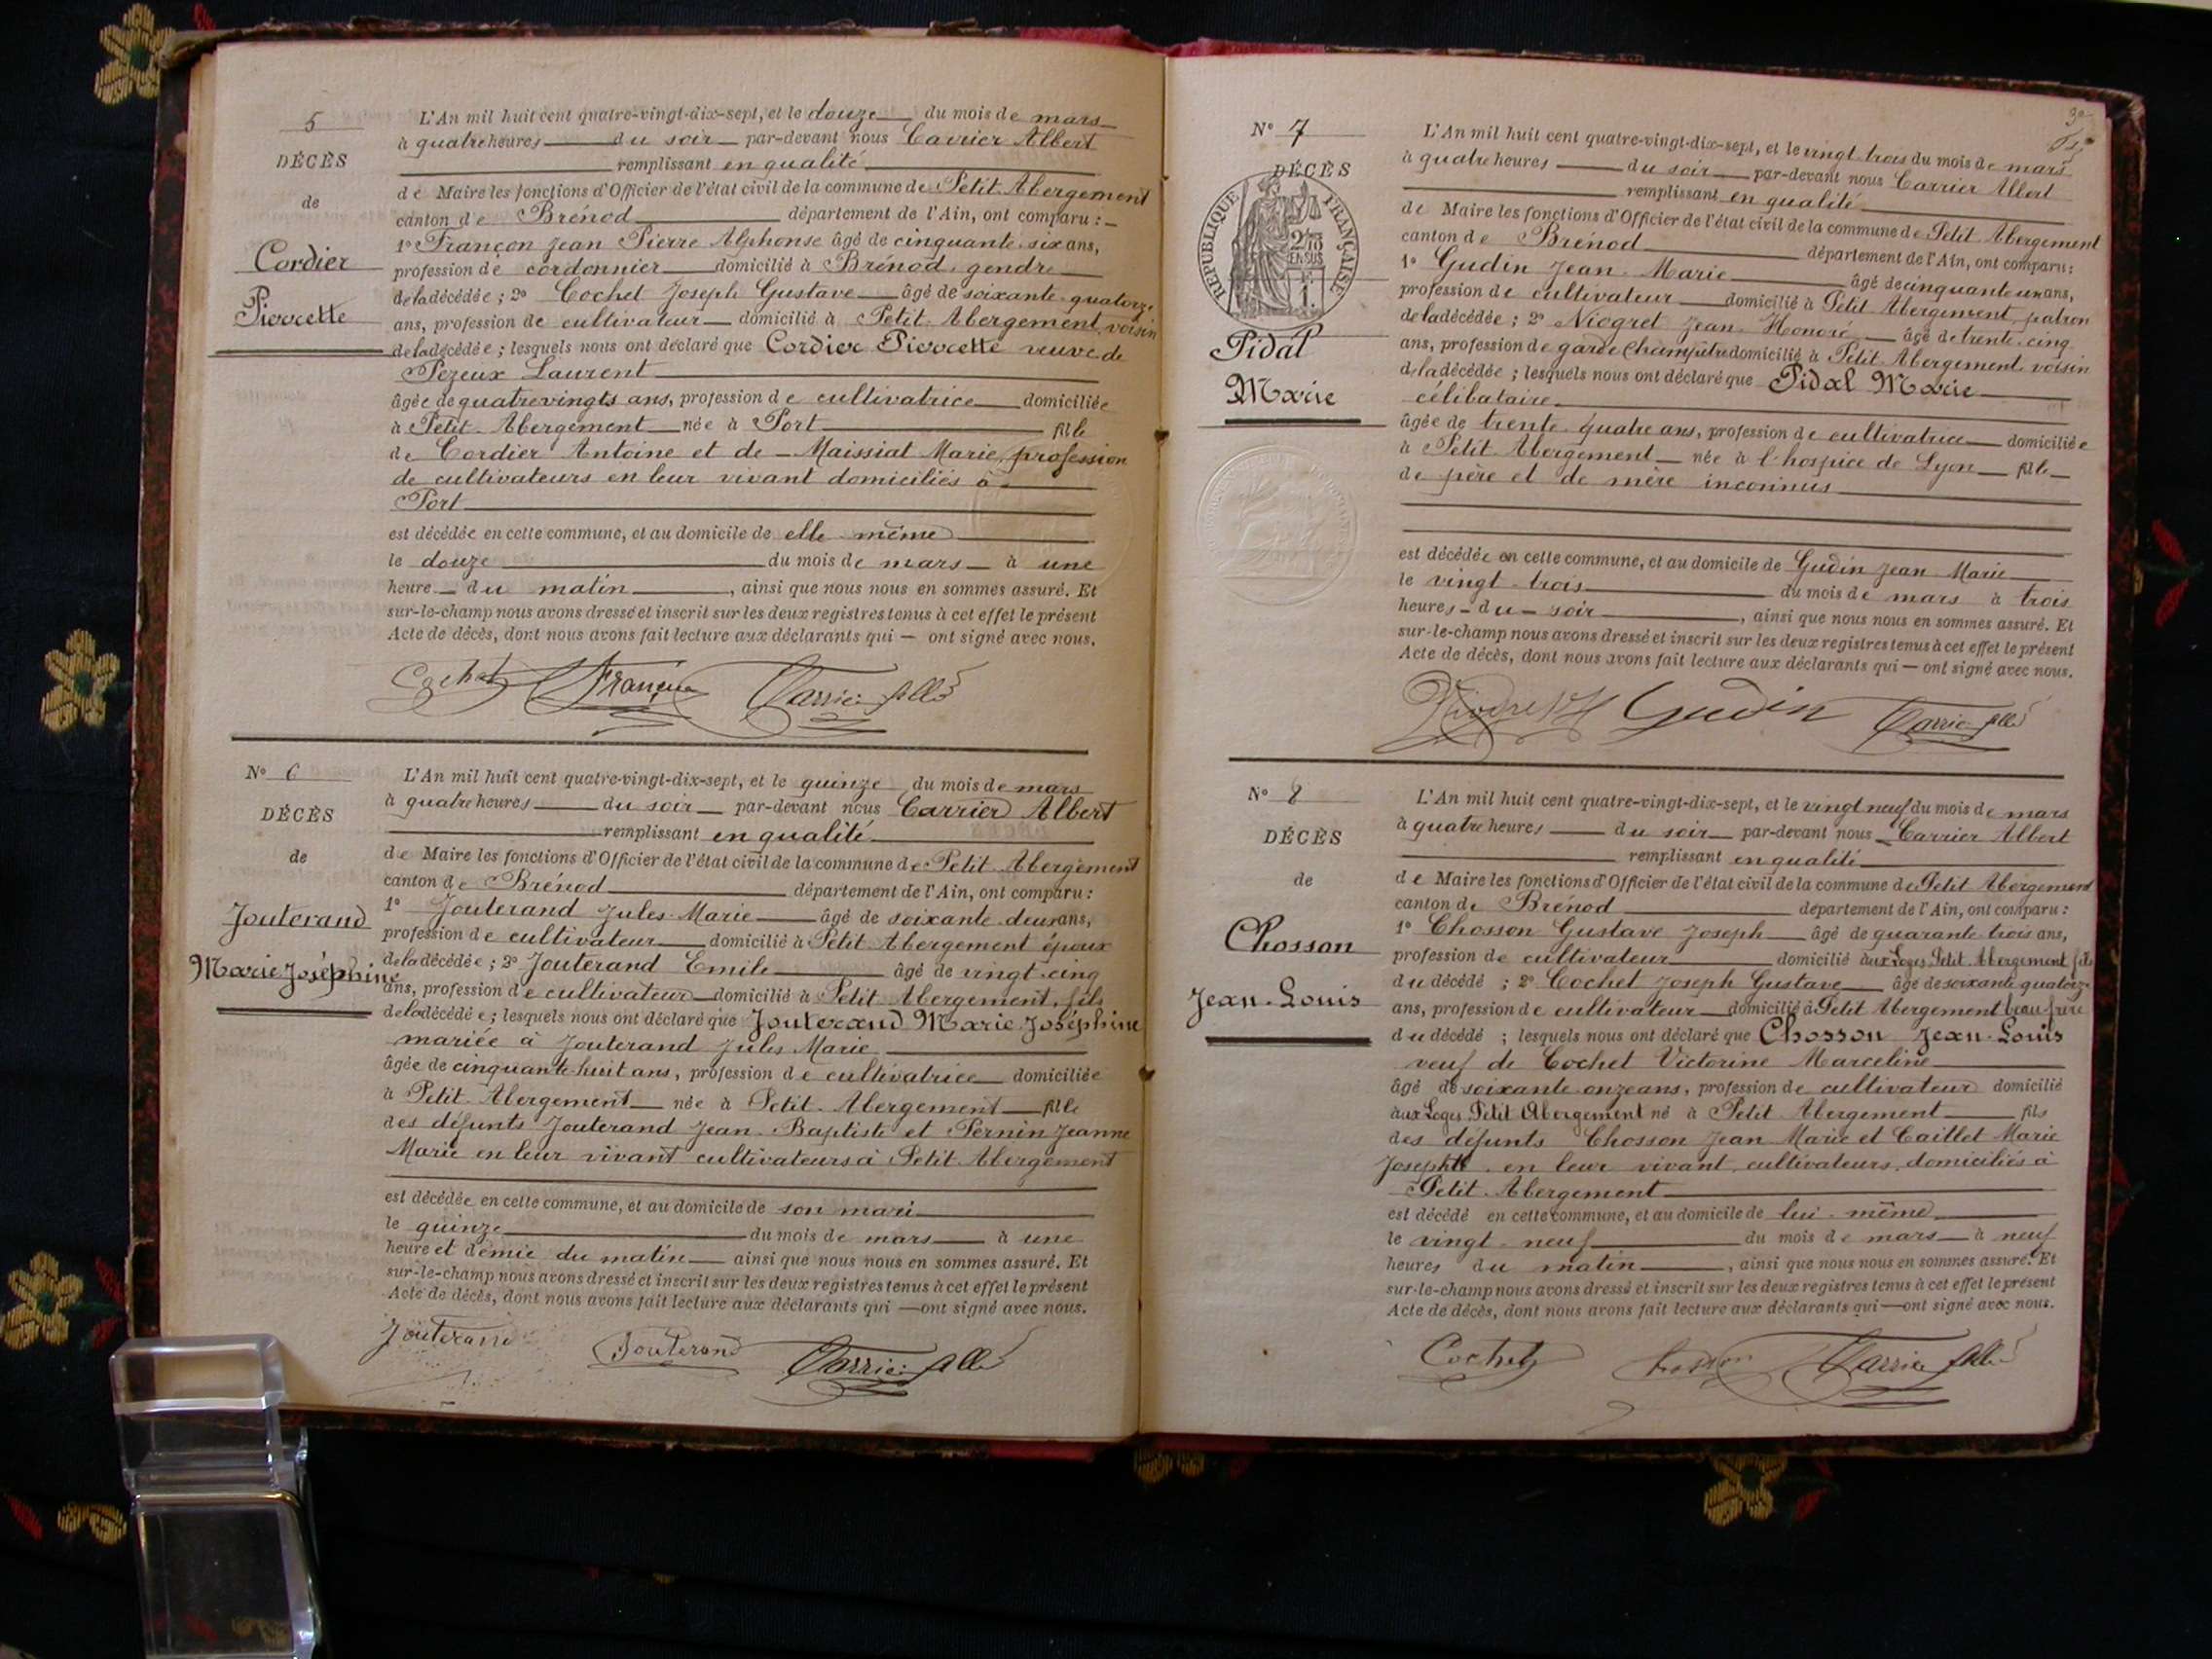 5
DÉCÈS
de
Cordier
Pierrette
L'An mil huit cent quatre-vingt-dix-sept, et le douze du mois de mars
à quatre heures du soir par-devant nous Carrier Albert
remplissant en qualité
de Maire les fonctions d'Officier de l'état civil de la commune de Petit-Abergement
canton de Brénod département de l'Ain, ont comparu :
1º Françon Jean Pierre Alphonse âgé de cinquante-six ans,
profession de cordonnier domicilié à Brénod, gendre
de la décédée ; 2º Cochet Joseph Gustave âgé de soixante-quatorze
ans, profession de cultivateur domicilié à Petit-Abergement, voisin
de la décédée ; lesquels nous ont déclaré que Cordier Pierrette veuve de
Pezeux Laurent
âgée de quatre vingts ans, profession de cultivatrice domiciliée
à Petit-Abergement née à Port fille
de Cordier Antoine et de Maissiat Marie, profession
de cultivateurs en leur vivant domiciliés à
Port
est décédée en cette commune, et au domicile de elle-même
le douze du mois de mars à une
heure du matin, ainsi que nous nous en sommes assuré. Et
sur-le-champ nous avons dressé et inscrit sur les deux registres tenus à cet effet le présent
Acte de décès, dont nous avons fait lecture aux déclarants qui — ont signé avec nous.
Cochet Françon Carrier Albt
Nº 6
DÉCÈS
de
Jouterand
Marie Joséphine
L'An mil huit cent quatre-vingt-dix-sept, et le quinze du mois de mars
à quatre heures du soir par-devant nous Carrier Albert
remplissant en qualité
de Maire les fonctions d'Officier de l'état civil de la commune de Petit-Abergement
canton de Brénod département de l'Ain, ont comparu :
1º Jouterand Jules-Marie âgé de soixante-deux ans,
profession de cultivateur domicilié à Petit-Abergement époux
de la décédée ; 2º Jouterand Emile âgé de vingt-cinq
ans, profession de cultivateur domicilié à Petit-Abergement, fils
de la décédée ; lesquels nous ont déclaré que Jouterand Marie Joséphine
mariée à Jouterand Jules Marie
âgée de cinquante-huit ans, profession de cultivatrice domiciliée
à Petit-Abergement née à Petit-Abergement fille
des défunts Jouterand Jean-Baptiste et Pernin Jeanne
Marie en leur vivant cultivateurs à Petit-Abergement
est décédée en cette commune, et au domicile de son mari
le quinze du mois de mars à une
heure et demie du matin ainsi que nous nous en sommes assuré. Et
sur-le-champ nous avons dressé et inscrit sur les deux registres tenus à cet effet le présent
Acte de décès, dont nous avons fait lecture aux déclarants qui — ont signé avec nous.
Jouterand Jouterand Carrier Albt
Nº 7
DÉCÈS
RÉPUBLIQUE FRANÇAISE
2/10 EN SUS
Pidal
Marie
L'An mil huit cent quatre-vingt-dix-sept, et le vingt-trois du mois de mars
à quatre heures du soir par-devant nous Carrier Albert
remplissant en qualité
de Maire les fonctions d'Officier de l'état civil de la commune de Petit-Abergement
canton de Brénod département de l'Ain, ont comparu :
1º Gudin Jean-Marie âgé de cinquante un ans,
profession de cultivateur domicilié à Petit-Abergement, patron
de la décédée ; 2º Niogret Jean-Honoré âgé de trente-cinq
ans, profession de garde champêtre domicilié à Petit-Abergement voisin
de la décédée ; lesquels nous ont déclaré que Pidal Marie
célibataire
âgée de trente-quatre ans, profession de cultivatrice domiciliée
à Petit-Abergement née à l'hospice de Lyon fille
de père et de mère inconnus
est décédée en cette commune, et au domicile de Gudin Jean-Marie
le vingt-trois du mois de mars à trois
heures du soir, ainsi que nous nous en sommes assuré. Et
sur-le-champ nous avons dressé et inscrit sur les deux registres tenus à cet effet le présent
Acte de décès, dont nous avons fait lecture aux déclarants qui — ont signé avec nous.
Gudin Carrier Albt
Nº 8
DÉCÈS
de
Chosson
Jean-Louis
L'An mil huit cent quatre-vingt-dix-sept, et le vingt neuf du mois de mars
à quatre heures du soir par-devant nous Carrier Albert
remplissant en qualité
de Maire les fonctions d'Officier de l'état civil de la commune de Petit Abergement
canton de Brénod département de l'Ain, ont comparu :
1º Chosson Gustave Joseph âgé de quarante-trois ans,
profession de cultivateur domicilié aux Loges, Petit-Abergement fils
du décédé ; 2º Cochet Joseph Gustave âgé de soixante quatorze
ans, profession de cultivateur domicilié à Petit Abergement beau frère
du décédé ; lesquels nous ont déclaré que Chosson Jean-Louis
veuf de Cochet Victorine Marceline
âgé de soixante-onze ans, profession de cultivateur domicilié
aux Loges, Petit Abergement né à Petit-Abergement fils
des défunts Chosson Jean Marie et Caillet Marie
Josephte en leur vivant, cultivateurs, domiciliés à
Petit-Abergement
est décédé en cette commune, et au domicile de lui-même
le vingt-neuf du mois de mars à neuf
heures du matin, ainsi que nous nous en sommes assuré. Et
sur-le-champ nous avons dressé et inscrit sur les deux registres tenus à cet effet le présent
Acte de décès, dont nous avons fait lecture aux déclarants qui — ont signé avec nous.
Cochet Chosson Carrier Albt